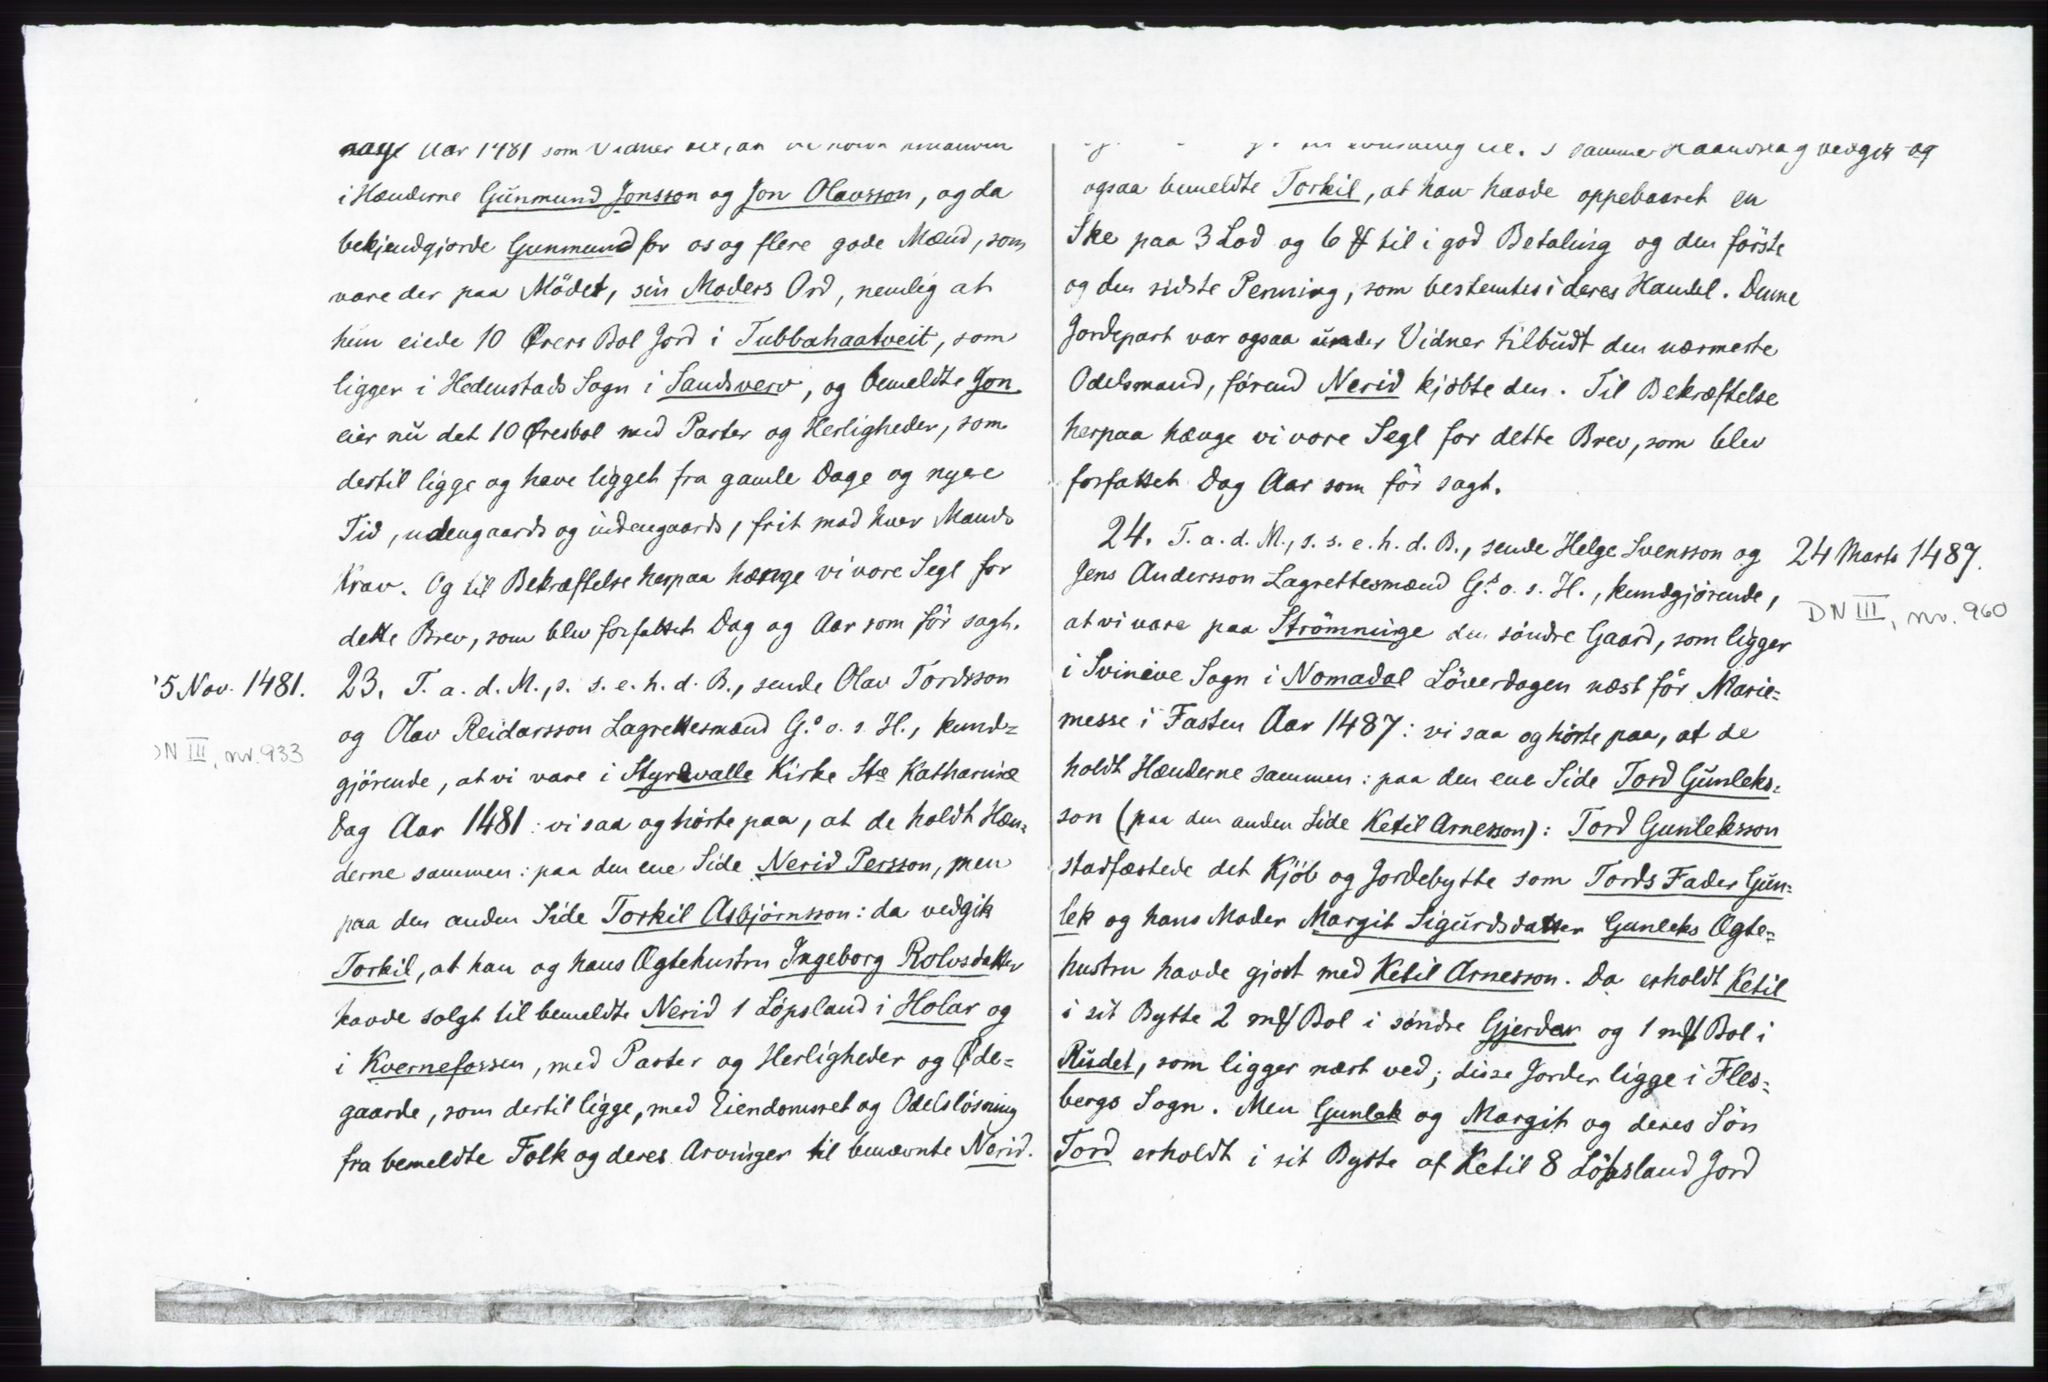 Aar 1481 som Vidner
i Hænderne Gunmund Jonsson og Jon Olavsson, og da
bekjendgjorde Gunmund for os og flere gode Mænd, som
vare der paa Mödet, sin Moders Ord, nemlig at
hun eiede 10 Örers Bol Jord i Tubbahaatveit, som
ligger i Hedenstads Sogn i Sandsverv, og bemeldte Jon
eier nu det 10 Öresbol med Parter og Herligheder, som
dertil ligge og have ligget fra gamle Dage og nyere
Tid, udengaards og indengaards, frit mod hver Mands
Krav. Og til Bekræftelse herpaa hænge vi vore Segl for
dette Brev, som blev forfattet Dag og Aar som för sagt.
5 Nov. 1481.
DN III, nr. 933
23. T. a. d. M., s. s. e. h. d. B., sende Olav Tordsson
og Olav Reidarsson Lagrettesmænd G.s o. s. H., kund=
gjörende, at vi vare i Styrevalle Kirke Stæ Katharinæ
Dag Aar 1481: vi saa og hörte paa, at de holdt Hæn-
derne sammen: paa den ene Side Nerid Persson, men
paa den anden Side Torkil Asbjörnsson: da vedgik
Torkil, at han og hans Ægtehustru Ingeborg Rolvsdatter
havde solgt til bemeldte Nerid 1 Löpsland i Holar og
i Kvernefossen, med Parter og Herligheder og Öde=
gaarde, som dertil ligge, med Eiendomsret og Odelslösning
fra bemeldte Folk og deres Arvinger til benævnte Nerid.
samme Haandslag vedgik og
ogsaa bemeldte Torkil, at han havde oppebaaret en
Ske paa 3 Lod og 6 ₰ til i god Betaling og den förste
og den sidste Penning, som bestemtes i deres Handel. Denne
Jordepart var ogsaa under Vidner tilbudt den nærmeste
Odelsmand, förend Nerid kjöbte den. Til Bekræftelse
herpaa hænge vi vore Segl for dette Brev, som blev
forfattet Dag Aar som för sagt.
24. T. a. d. M., s. s. e. h. d. B., sende Helge Svensson og
24 Marts 1487.
DN III, nr. 960
Jens Andersson Lagrettesmænd G.s o. s. H., kundgjörende,
at vi vare paa Strömninge den söndre Gaard, som ligger
i Svineve Sogn i Nomadal Löverdagen næst för Marie=
messe i Fasten Aar 1487: vi saa og hörte paa, at de
holdt Hænderne sammen: paa den ene Side Tord Gunleks=
son (paa den anden Side Ketil Arnesson): Tord Gunleksson
stadfæstede det Kjöb og Jordebytte som Tords Fader Gun=
lek og hans Moder Margit Sigurdsdatter Gunleks Ægte=
hustru havde gjort med Ketil Arnesson. Da erholdt Ketil
i sit Bytte 2 m₰ Bol i söndre Gjerdar og 1 m₰ Bol i
Rudet, som ligger næst ved; disse Jorder ligge i Fles=
bergs Sogn. Men Gunlek og Margit og deres Sön
Tord erholdt i sit Bytte af Ketil 8 Löpsland Jord